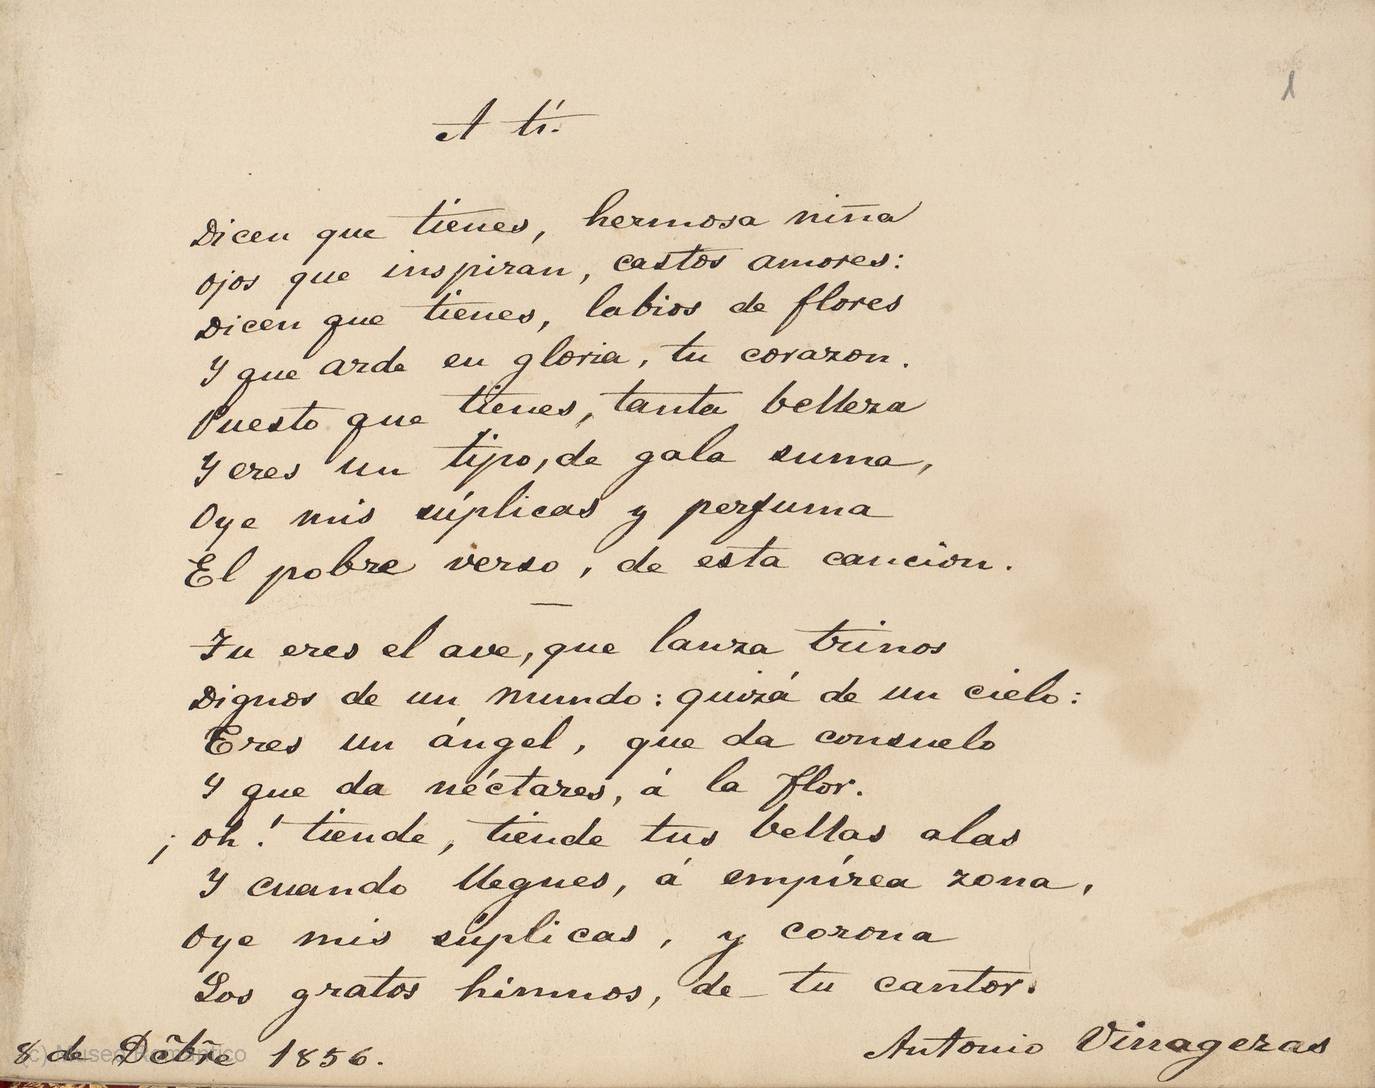 1
A tí.
Dicen que tienes, hermosa niña
Ojos que inspiran, castos amores:
Dicen que tienes, labios de flores
Y que arde en gloria, tu corazon.
Puesto que tienes, tanta belleza
Y eres un tipo, de gala suma,
Oye mis súplicas y perfuma
El pobre verso, de esta cancion.
Tu eres el ave, que lanza trinos
Dignos de un mundo: quizá de un cielo:
Eres un ángel, que da consuelo
Y que da néctares, á la flor.
¡Oh! tiende, tiende tus bellas alas
Y cuando llegues, á empírea zona,
Oye mis súplicas, y corona
Los gratos himnos, de tu cantor.
8 de Dcbre 1856.
Antonio Vinageras
(c) Museo Romántico